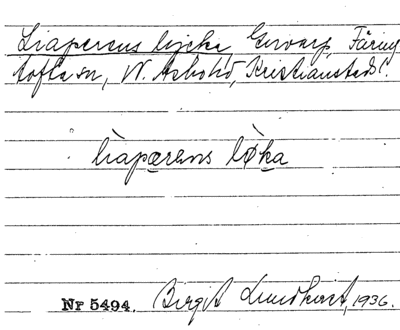 Liaperens lycka Gunarp, Färing
tofta sn, N. Åsbohd, Kristianstads l.
lìapærens lø̀ka
Nr 5494. Birgit Lundkvist, 1936.